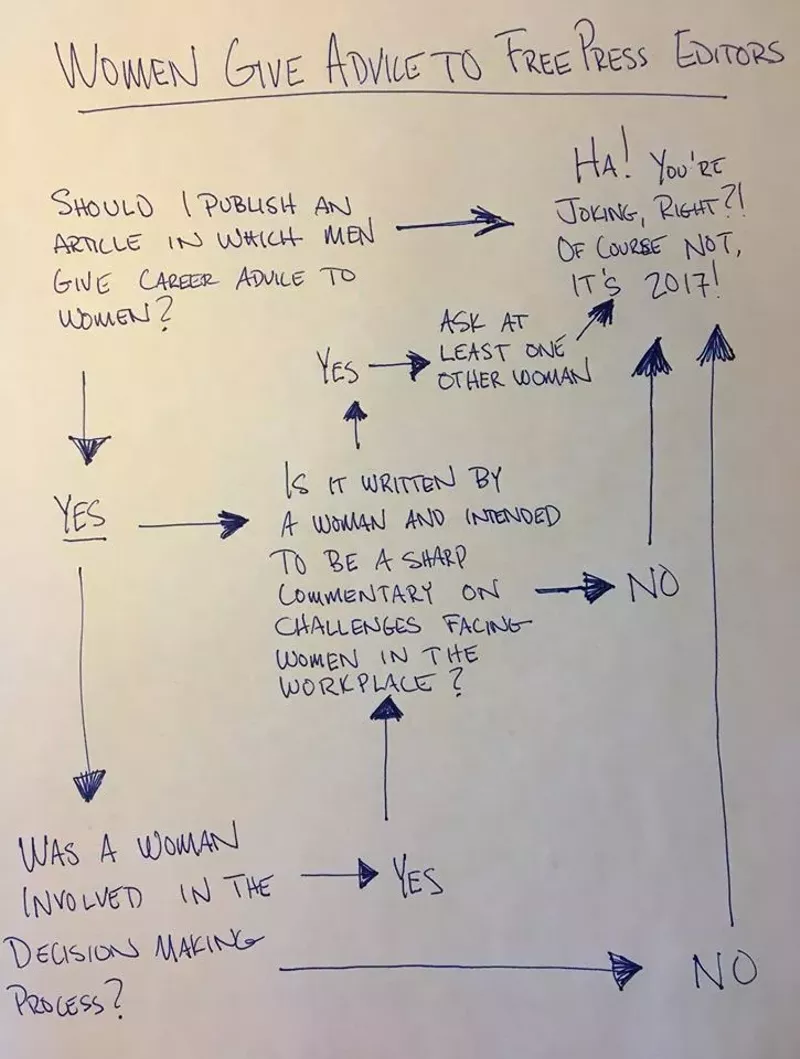 WOMEN GIVE ADVICE TO FREE PRESS EDITORS
SHOULD I PUBLISH AN
ARTICLE IN WHICH MEN
GIVE CAREER ADVICE TO
WOMEN?
HA! YOU'RE
JOKING, RIGHT?!
OF COURSE NOT,
IT'S 2017!
YES
ASK AT
LEAST ONE
OTHER WOMAN
YES
IS IT WRITTEN BY
A WOMAN AND INTENDED
TO BE A SHARP
COMMENTARY ON
CHALLENGES FACING
WOMEN IN THE
WORKPLACE?
NO
WAS A WOMAN
INVOLVED IN THE
DECISION MAKING
PROCESS?
YES
NO